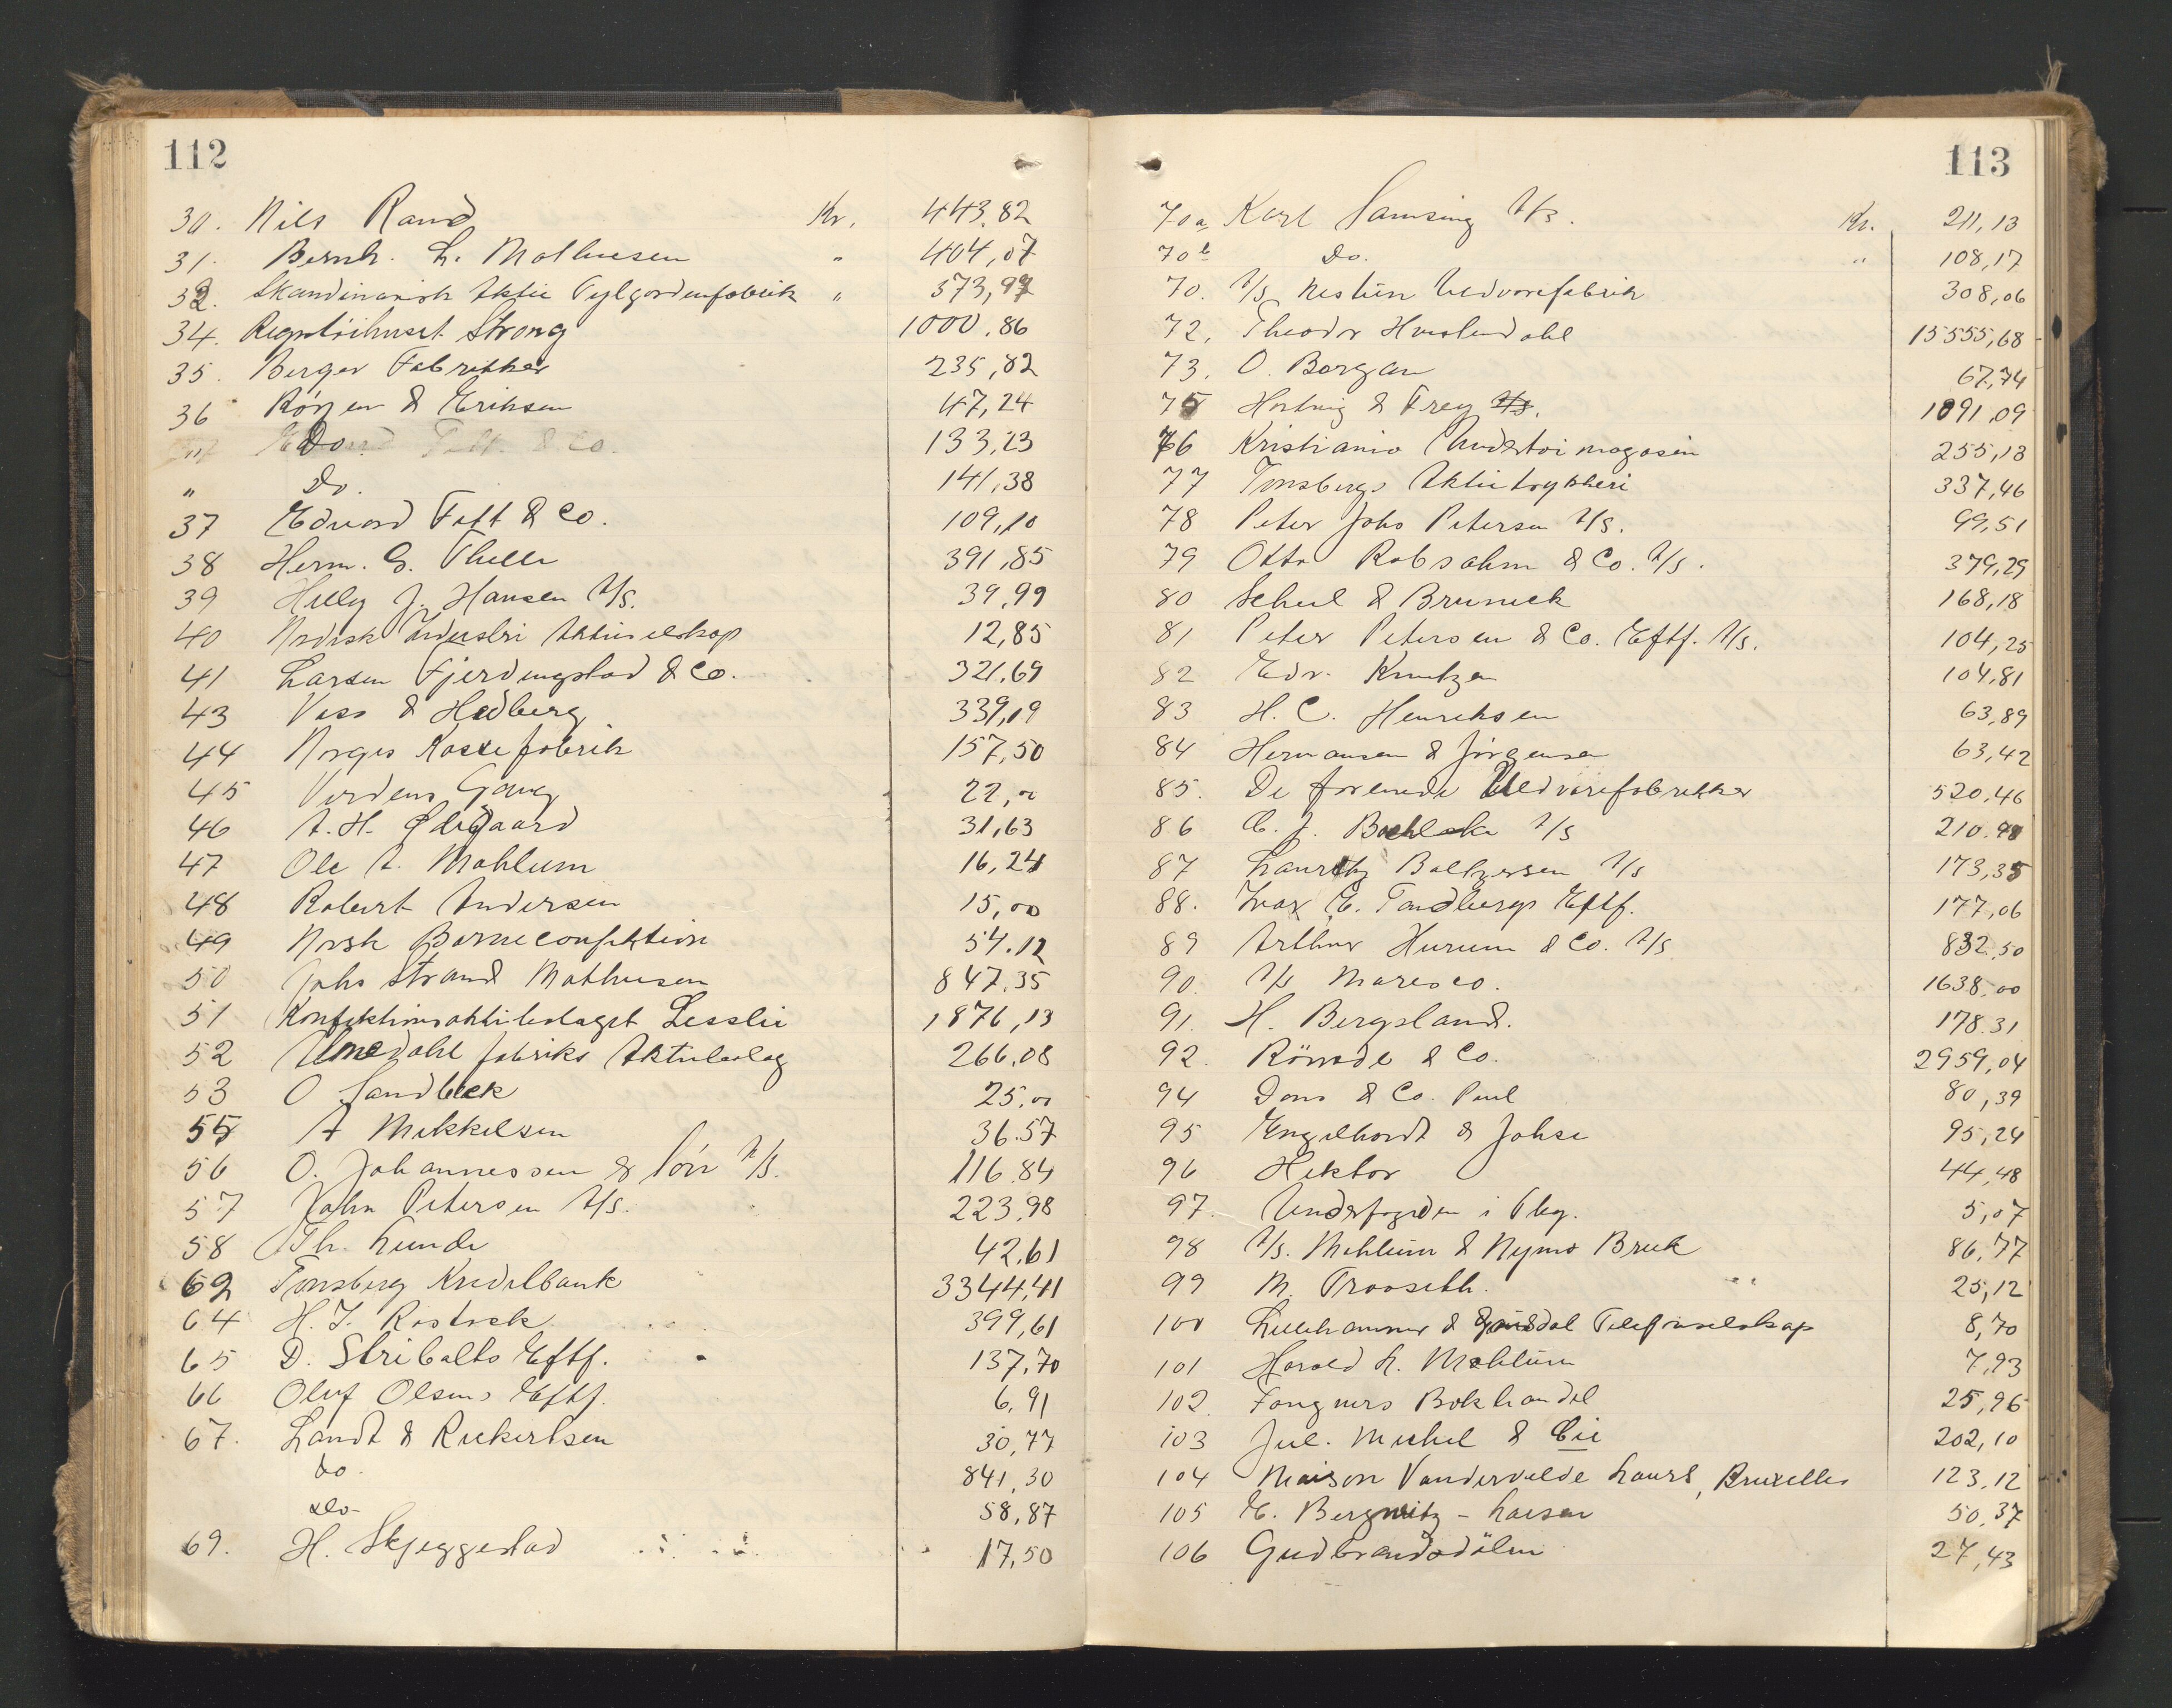 112
30. Nils Rand Kr. 443.82
31. Bernh. L. Mathiesen " 404,07
32. Skandinavisk Aktie Tylgardinfabrik " 373,97
34. Regntöihuset Strong 1000.86
35. Berger Fabrikker 235,82
36 Rözen & Eriksen 47,24
" Do. 133,23
" Do. 141,38
37 Edvard Fett & Co. 109,10
38 Herm. G. Thelle 391,85
39 Helly J. Hansen A/S. 39,99
40 Nordisk Industri Aktieselskap 12,85
41 Larsen Fjerdingstad & Co. 321,69
43 Voss & Hedberg 339,19
44 Norges Kassefabrik 157,50
45 Verdens Gang 22,00
46 A. H. Ødegaard 31,63
47 Ole A. Mæhlum 16,24
48 Robert Andersen 15,00
49 Norsk Barneconfektion 54.12
50 Johs Strand Mathiesen 847.35
51 Konfektionsaktiebolaget Lesslie 1876,13
52 Almedahl fabriks Aktiebolag 266.08
53 O Sandbeck 25.00
55 A Mikkelsen 36.57
56 O. Johannessen & Sön A/S. 116.84
57 John Petersen A/S. 223,98
58 Th. Lunde 42,61
62 Tønsberg Kreditbank 3344,41
64 H. J. Rostock 399,61
65 D. Stribolts Eftf. 137,70
66 Oluf Olsens Eftf. 6,91
67. Landt & Rickertsen 30,77
do. 841,30
do- 58,87
69. H. Skjeggestad 17,50
113
70a Karl Samsing A/S. Kr. 211,13
70b Do. " 108,17
70. A/S Nestun Uldvarefabrik 308,06
72. Theodor Hvistendahl 15555,68
73. O. Borgan 67,74
75 Hartvig & Frey A/S. 1091,09
76 Kristiania Undertöimagasin 255,13
77 Tønsbergs Aktietrykkeri 337,46
78 Peter Johs Petersen A/S. 99,51
79 Otto Robsahm & Co. A/S. 379,29
80 Scheel & Bruneck 168,18
81 Peter Petersen & Co. Eftf. A/S. 104,25
82 Edv. Knutzen 104,81
83 H. C. Henriksen 63,89
84 Hermansen & Jørgensen 63,42
85. De forenede Uldvarefabrikker 520,46
86 C. J. A/S 210.90
87 Lauritz Baltzersen A/S 173,35
88. Ivar E. Tandbergs Eftf. 177,06
89 Arthur Hurum & Co. A/S 832,50
90. A/S Maresco. 1638,00
91. H. Bergsland. 178.31
92. Rönnde & Co. 2959,04
94 Dons & Co. Paul 80,39
95 Engelhardt & Johse 95,24
96 Hektor 44,48
97. Underfogden i Tbg. 5,07
98 A/S. Mæhlum & Nymo Bruk 86,77
99 M. Trooseth. 25,12
100 Lillehammer & Gausdal Telefonselskap 8,70
101 Harald L. Mæhlum 7,93
102 Fangners Bokhandel 25,96
103 Jul. Michel & Cie 202,10
104 Maison Vandervelde Laurs, Bruxelles 123,12
105 E. Bergwitz - Larsen 50,37
106 Gudbrandsdölen 27,43